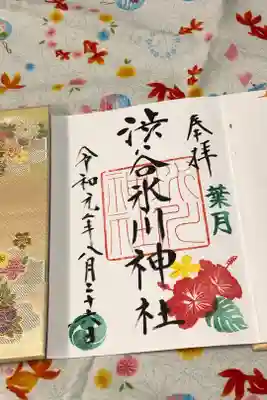 奉拝
葉月
渋谷氷川神社
令和元年八月二十六日